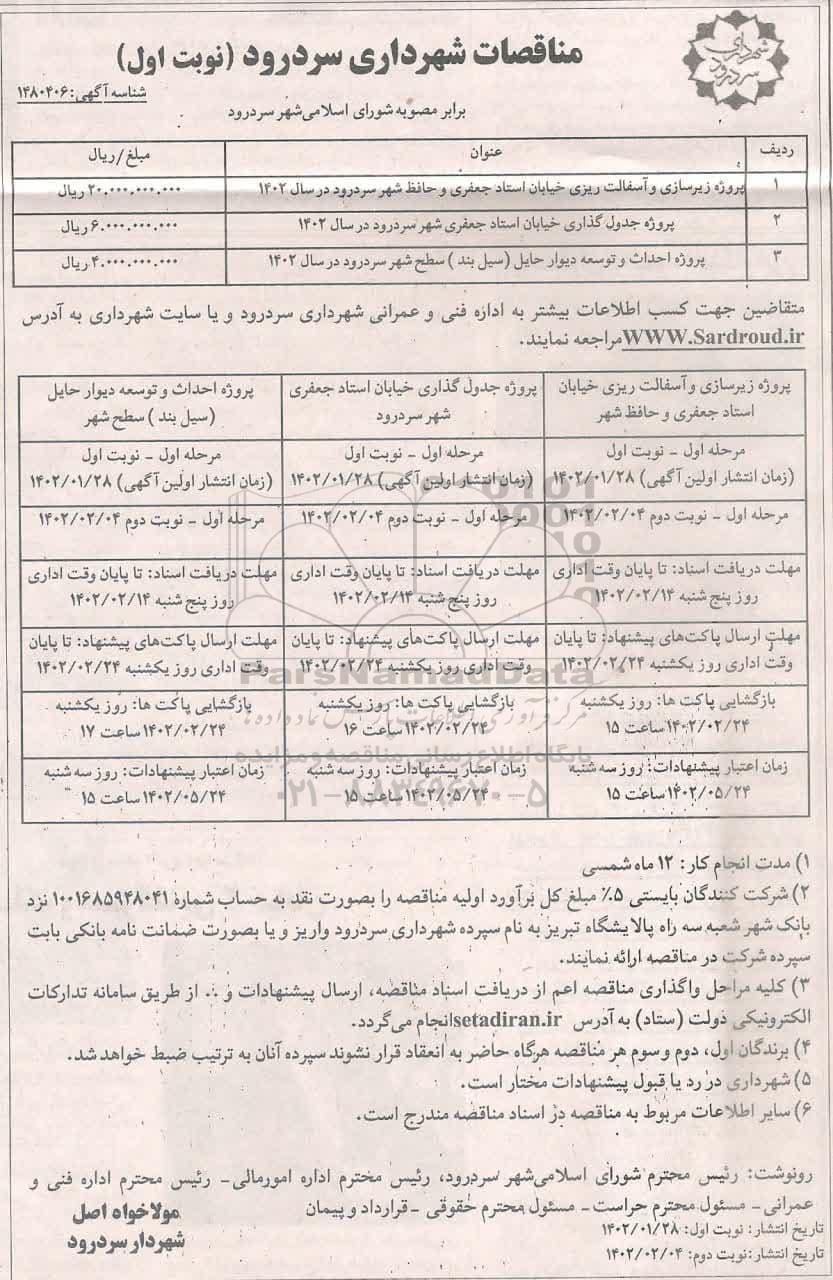 شهرداری
سردرود
مناقصات شهرداری سردرود (نوبت اول)
شناسه آگهی: ۱۴۸۰۴۰۶
برابر مصوبه شورای اسلامی شهر سردرود
ردیف عنوان مبلغ/ریال
۱ پروژه زیرسازی و آسفالت ریزی خیابان استاد جعفری و حافظ شهر سردرود در سال ۱۴۰۲ ۲۰.۰۰۰.۰۰۰.۰۰۰ ریال
۲ پروژه جدول گذاری خیابان استاد جعفری شهر سردرود در سال ۱۴۰۲ ۶.۰۰۰.۰۰۰.۰۰۰ ریال
۳ پروژه احداث و توسعه دیوار حایل (سیل بند) سطح شهر سردرود در سال ۱۴۰۲ ۴.۰۰۰.۰۰۰.۰۰۰ ریال
متقاضین جهت کسب اطلاعات بیشتر به اداره فنی و عمرانی شهرداری سردرود و یا سایت شهرداری به آدرس
WWW.Sardroud.ir مراجعه نمایند.
پروژه زیرسازی و آسفالت ریزی خیابان پروژه جدول گذاری خیابان استاد جعفری پروژه احداث و توسعه دیوار حایل
استاد جعفری و حافظ شهر شهر سردرود (سیل بند) سطح شهر
مرحله اول - نوبت اول مرحله اول - نوبت اول مرحله اول - نوبت اول
(زمان انتشار اولین آگهی) ۱۴۰۲/۰۱/۲۸ (زمان انتشار اولین آگهی) ۱۴۰۲/۰۱/۲۸ (زمان انتشار اولین آگهی) ۱۴۰۲/۰۱/۲۸
مرحله اول - نوبت دوم ۱۴۰۲/۰۲/۰۴ مرحله اول - نوبت دوم ۱۴۰۲/۰۲/۰۴ مرحله اول - نوبت دوم ۱۴۰۲/۰۲/۰۴
مهلت دریافت اسناد: تا پایان وقت اداری مهلت دریافت اسناد: تا پایان وقت اداری مهلت دریافت اسناد: تا پایان وقت اداری
روز پنج شنبه ۱۴۰۲/۰۲/۱۴ روز پنج شنبه ۱۴۰۲/۰۲/۱۴ روز پنج شنبه ۱۴۰۲/۰۲/۱۴
مهلت ارسال پاکت‌های پیشنهاد: تا پایان مهلت ارسال پاکت‌های پیشنهاد: تا پایان مهلت ارسال پاکت‌های پیشنهاد: تا پایان
وقت اداری روز یکشنبه ۱۴۰۲/۰۲/۲۴ وقت اداری روز یکشنبه ۱۴۰۲/۰۲/۲۴ وقت اداری روز یکشنبه ۱۴۰۲/۰۲/۲۴
ParsNamadData
بازگشایی پاکت ها: روز یکشنبه بازگشایی پاکت ها: روز یکشنبه بازگشایی پاکت ها: روز یکشنبه
۱۴۰۲/۰۲/۲۴ ساعت ۱۵ ۱۴۰۲/۰۲/۲۴ ساعت ۱۶ ۱۴۰۲/۰۲/۲۴ ساعت ۱۷
پایگاه اطلاع رسانی مناقصه و مزایده
زمان اعتبار پیشنهادات: روز سه شنبه زمان اعتبار پیشنهادات: روز سه شنبه زمان اعتبار پیشنهادات: روز سه شنبه
۱۴۰۲/۰۵/۲۴ ساعت ۱۵ ۱۴۰۲/۰۵/۲۴ ساعت ۱۵ ۱۴۰۲/۰۵/۲۴ ساعت ۱۵
۰۲۱-۸۸۳۴۹۶۷۰-۵
۱) مدت انجام کار: ۱۲ ماه شمسی
۲) شرکت کنندگان بایستی ۵٪ مبلغ کل برآورد اولیه مناقصه را بصورت نقد به حساب شماره ۱۰۰۱۶۸۵۹۴۸۰۴۱ نزد
بانک شهر شعبه سه راه پالایشگاه تبریز به نام سپرده شهرداری سردرود واریز و یا بصورت ضمانت نامه بانکی بابت
سپرده شرکت در مناقصه ارائه نمایند.
۳) کلیه مراحل واگذاری مناقصه اعم از دریافت اسناد مناقصه، ارسال پیشنهادات و .. از طریق سامانه تدارکات
الکترونیکی دولت (ستاد) به آدرس setadiran.ir انجام می‌گردد.
۴) برندگان اول، دوم و سوم هر مناقصه هرگاه حاضر به انعقاد قرار نشوند سپرده آنان به ترتیب ضبط خواهد شد.
۵) شهرداری در رد یا قبول پیشنهادات مختار است.
۶) سایر اطلاعات مربوط به مناقصه در اسناد مناقصه مندرج است.
رونوشت: رئیس محترم شورای اسلامی شهر سردرود، رئیس محترم اداره امورمالی- رئیس محترم اداره فنی و
عمرانی- مسئول محترم حراست- مسئول محترم حقوقی -قرارداد و پیمان
تاریخ انتشار: نوبت اول: ۱۴۰۲/۰۱/۲۸
تاریخ انتشار: نوبت دوم: ۱۴۰۲/۰۲/۰۴
مولاخواه اصل
شهردار سردرود